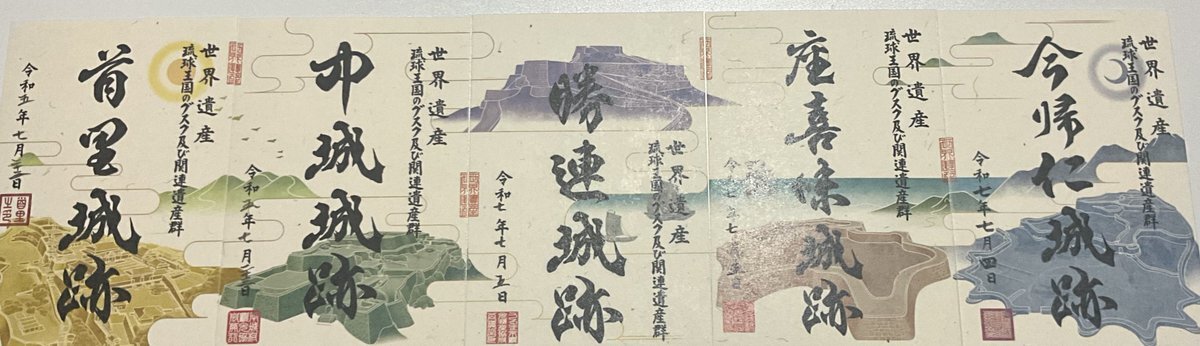 世界遺産
琉球王国のグスク及び関連遺産群
今帰仁城跡
令和七年七月四日
世界遺産
琉球王国のグスク及び関連遺産群
座喜味城跡
令和七年七月五日
世界遺産
琉球王国のグスク及び関連遺産群
勝連城跡
令和七年七月五日
世界遺産
琉球王国のグスク及び関連遺産群
中城城跡
令和五年七月
世界遺産
琉球王国のグスク及び関連遺産群
首里城跡
令和五年七月